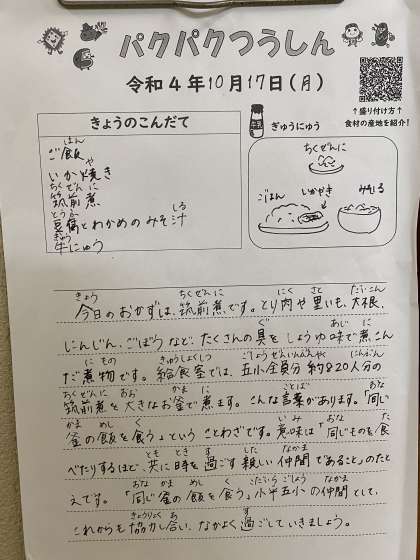 パクパクつうしん
令和4年10月17日(月)
↑盛り付け方↑
食材の産地を紹介!
きょうのこんだて
ご飯
いか焼き
筑前煮
豆腐とわかめのみそ汁
牛にゅう
ぎゅうにゅう
ちくぜんに
ごはん
いかやき
みそしる
今日のおかずは、筑前煮です。とり肉や里いも、大根、
にんじん、ごぼうなど、たくさんの具をしょうゆ味で煮こん
だ煮物です。給食室では、五小全員分約820人分の
筑前煮を大きなお釜で煮ます。こんな言葉があります。「同じ
釜の飯を食う」ということわざです。意味は「同じものを食
べたりするほど、共に時を過ごす親しい仲間であること」のたと
えです。「同じ釜の飯を食う」小平五小の仲間として、
これからも協力し合い、なかよく過ごしていきましょう。